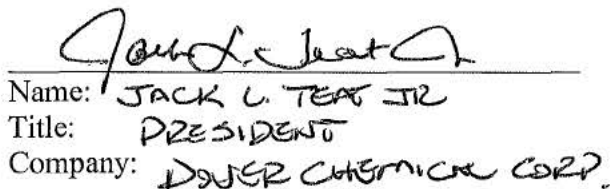 Jack L. Teat Jr
Name: JACK L. TEAT JR
Title: PRESIDENT
Company: DOVER CHEMICAL CORP.